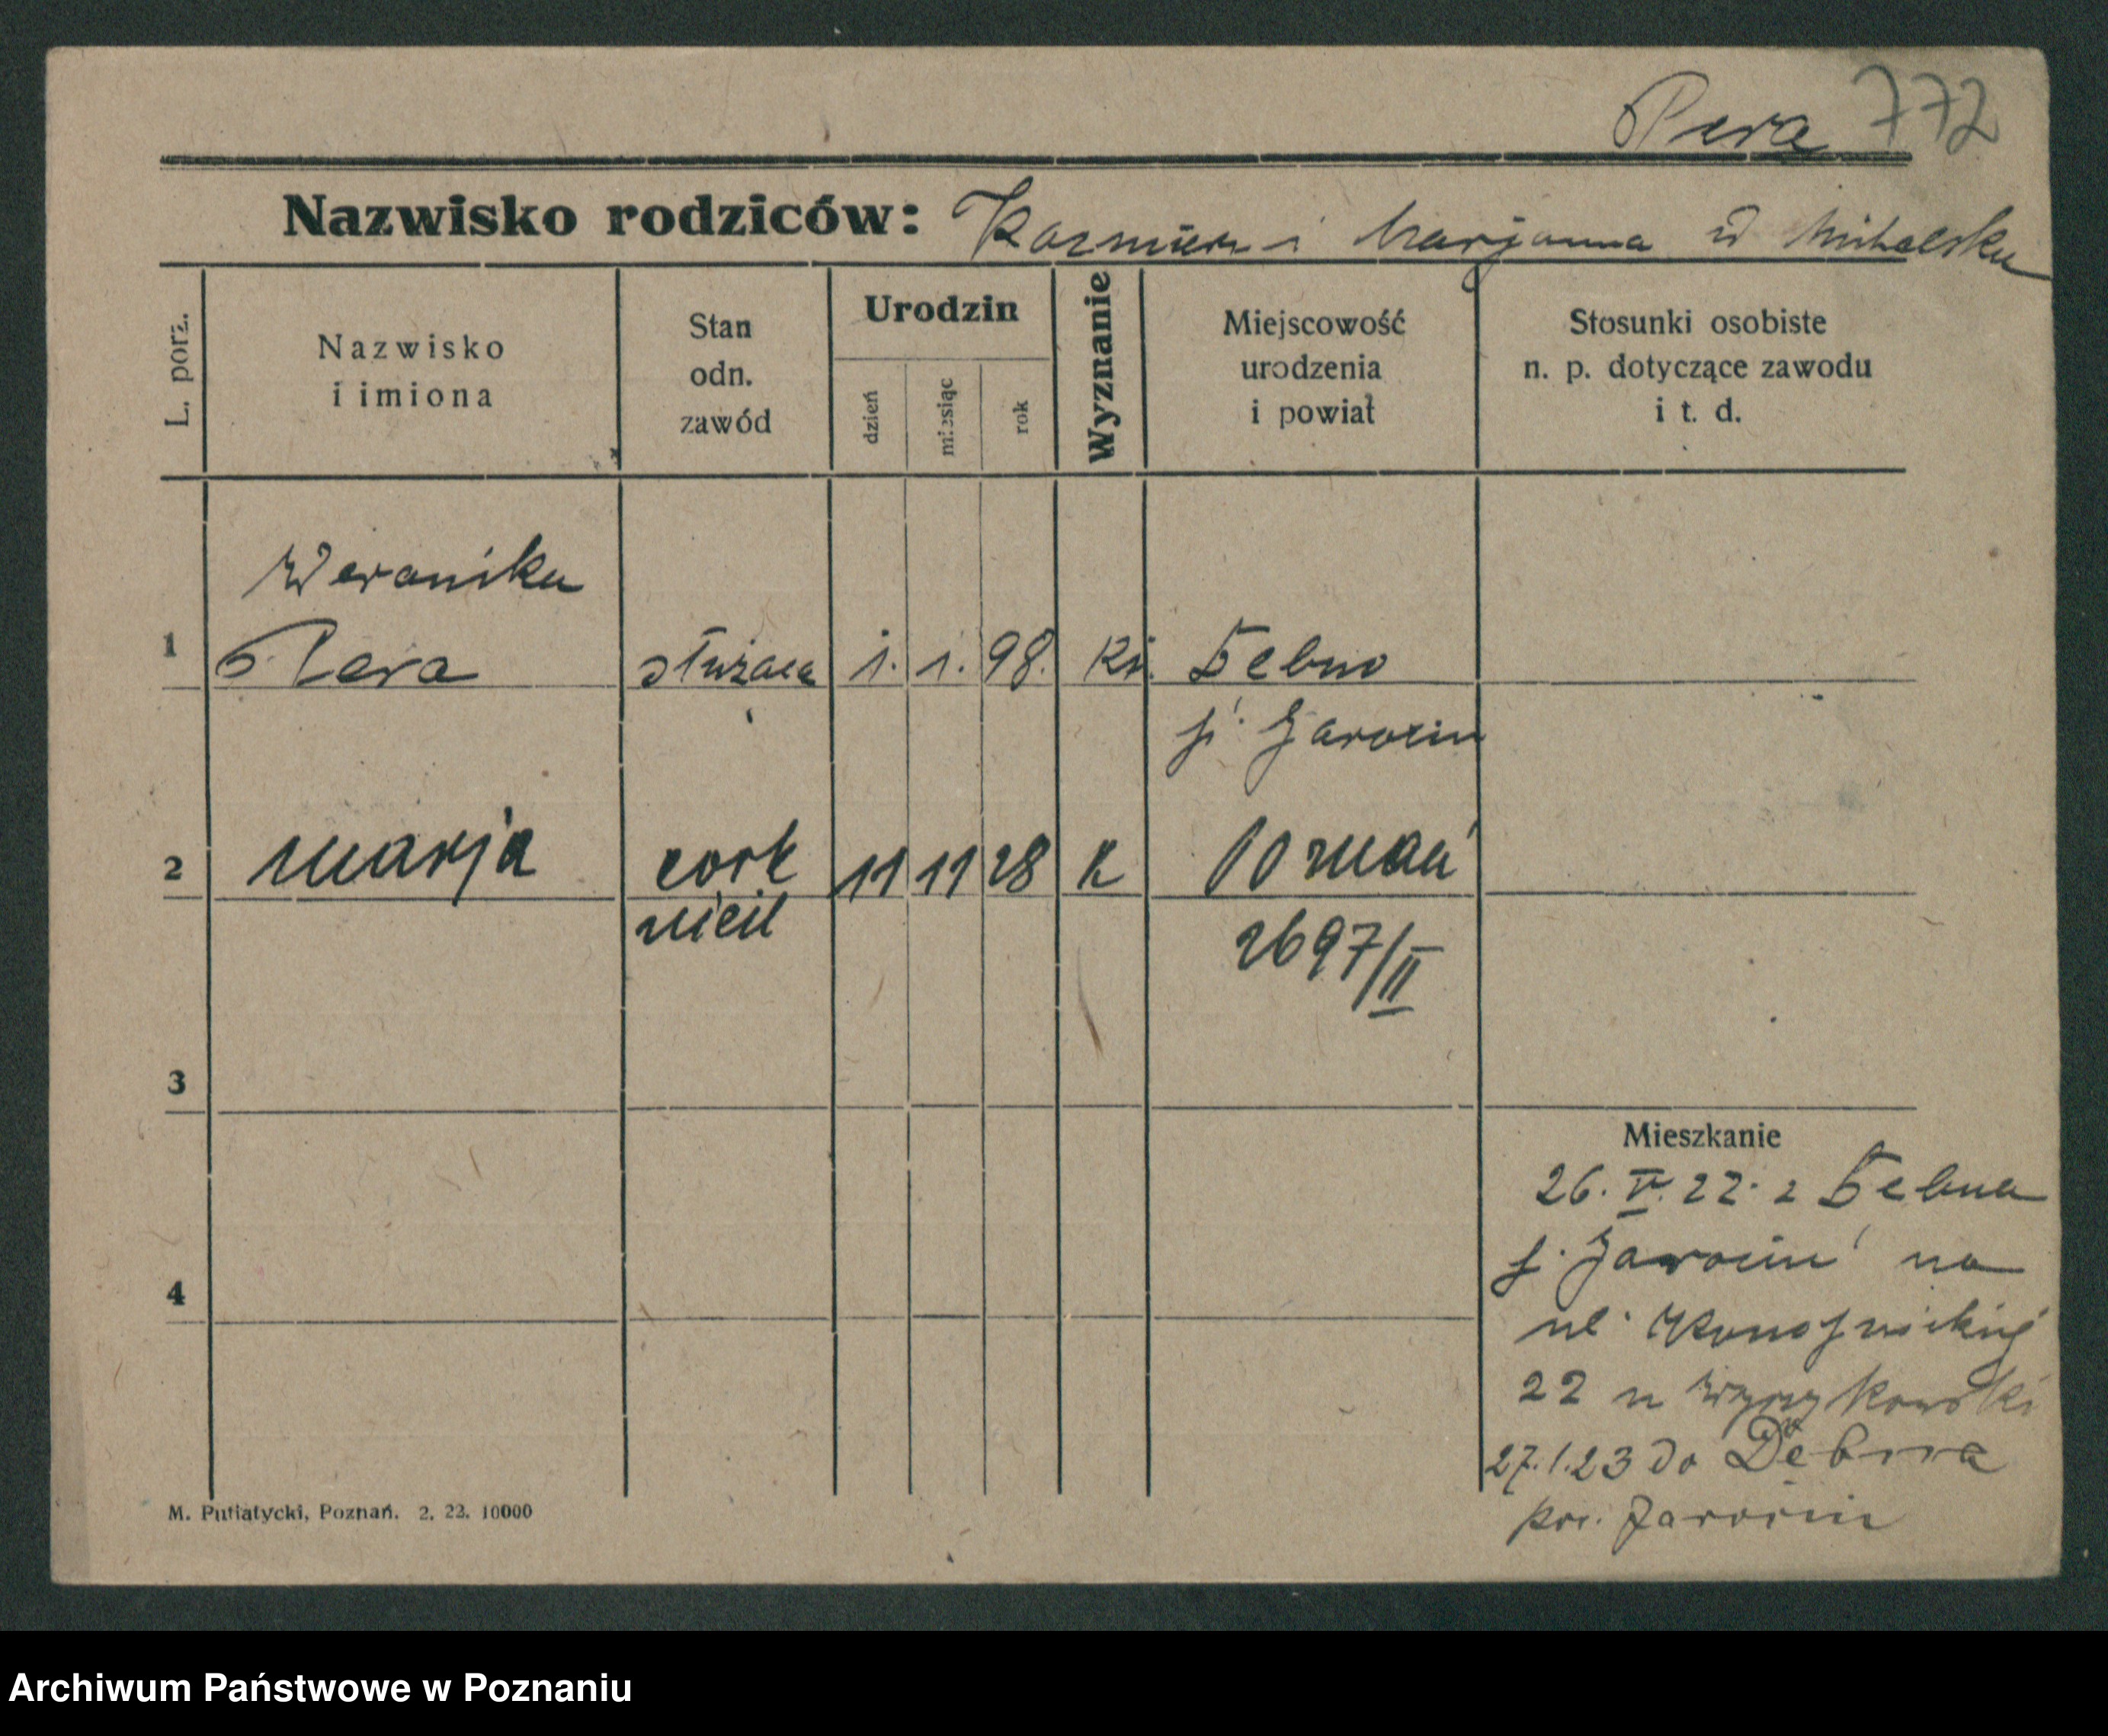 Pera 772
Nazwisko rodziców: Kazmierz i Marjanna d Michalska
L. porz.
Nazwisko
i imiona
Stan
odn.
zawód
Urodzin
dzień
miesiąc
rok
Wyznanie
Miejscowość
urodzenia
i powiat
Stosunki osobiste
n. p. dotyczące zawodu
i t. d.
Weronika
1 Pera służaca 1. 1. 98. Debno
Jarocin
2 Marja 11 11 28 k Poznań
nieśl
2697/II
3
Mieszkanie
26. V. 22. z Debna
Jarocin na
4
ul. Konopnickiej
22 u
27.1.23 do Dębna
pow. Jarocin
M. Putiatycki, Poznań. 2. 22. 10000
Archiwum Państwowe w Poznaniu